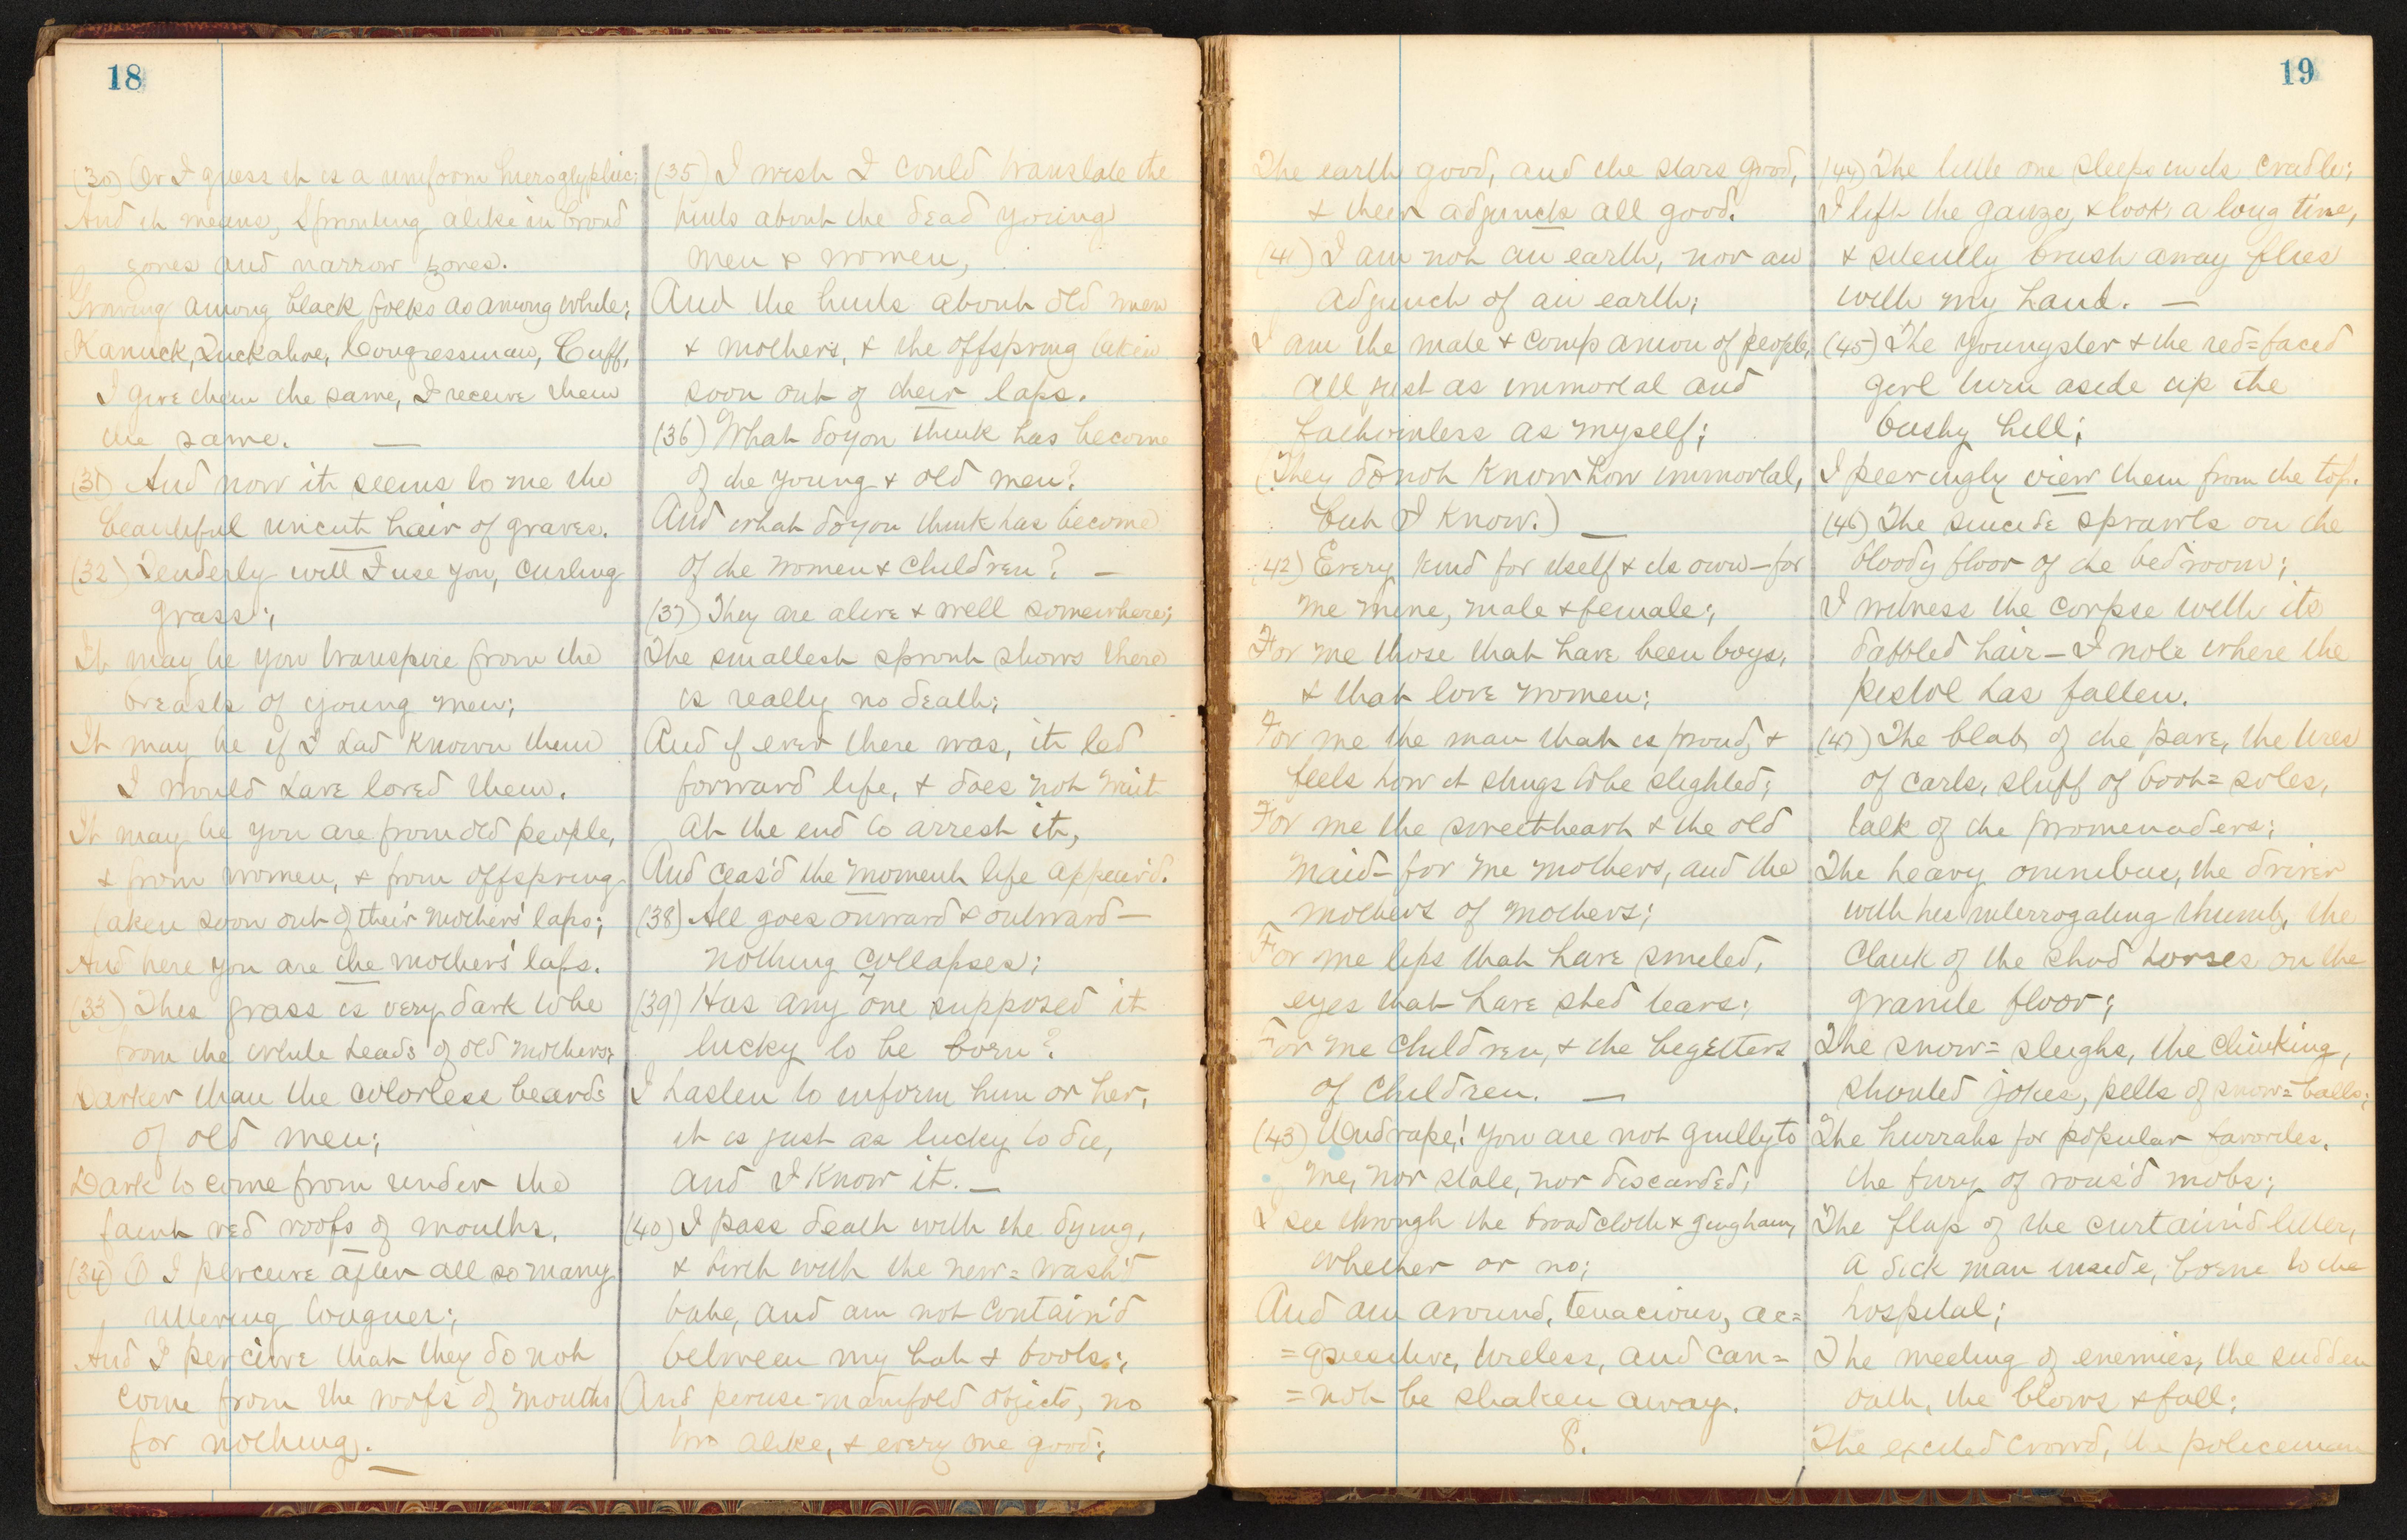 18
(30) Or I guess it is a uniform hieroglyphic;
And it means, Sprouting alike in broad
zones and narrow zones.
Growing among black folks as among white;
Kanuck, Tuckahoe, Congressman, Cuff,
I give them the same, I receive them
the same. —
(31) And now it seems to me the
beautiful uncut hair of graves.
(32) Tenderly will I use you, curling
grass;
It may be you transpire from the
breasts of young men;
It may be if I had known them
I would have loved them.
It may be you are from old people,
& from women, & from offspring
taken soon out of their mothers' laps;
And here you are the mothers' laps.
(33) This grass is very dark to be
from the white heads of old mothers;
Darker than the colorless beards
of old men;
Dark to come from under the
faint red roofs of mouths.
(34) O I perceive after all so many
uttering tongues;
And I perceive that they do not
come from the roofs of mouths
for nothing. —
(35) I wish I could translate the
hints about the dead young
men & women,
And the hints about old men
& mothers, & the offspring taken
soon out of their laps.
(36) What do you think has become
of the young & old men?
And what do you think has become
of the women & children? —
(37) They are alive & well somewhere;
The smallest sprout shows there
is really no death;
And if ever there was, it led
forward life, & does not wait
at the end to arrest it,
And ceas'd the moment life appear'd.
(38) All goes onward & outward —
nothing collapses;
(39) Has any one supposed it
lucky to be born?
I hasten to inform him or her,
it is just as lucky to die,
and I know it. —
(40) I pass death with the dying,
& birth with the new=wash'd
babe, and am not contain'd
between my hat & boots;
And peruse manifold objects, no
two alike, & every one good;
19
The earth good, and the stars good,
& their adjuncts all good.
(41) I am not an earth, nor an
adjunct of an earth;
I am the mate & companion of people,
all just as immortal and
fathomless as myself;
(They do not know how immortal,
but I know.) —
(42) Every kind for itself & its own — for
me mine, male & female;
For me those that have been boys,
& that love women;
For me the man that is proud, &
feels how it stings to be slighted;
For me the sweetheart & the old
maid — for me mothers, and the
mothers of mothers;
For me lips that have smiled,
eyes that have shed tears;
For me children, & the begetters
of children. —
(43) Undrape! you are not guilty to
me, nor stale, nor discarded;
I see through the broadcloth & gingham,
whether or no;
And am around, tenacious, ac=
=quisitive, tireless, and can=
=not be shaken away.
8.
(44) The little one sleeps in its cradle;
I lift the gauze, & look a long time,
& silently brush away flies
with my hand. —
(45) The youngster & the red=faced
girl turn aside up the
bushy hill;
I peeringly view them from the top.
(46) The suicide sprawls on the
bloody floor of the bedroom;
I witness the corpse with its
dabbled hair — I note where the
pistol has fallen.
(47) The blab of the pave, the tires
of carts, sluff of boot=soles,
talk of the promenaders;
The heavy omnibus, the driver
with his interrogating thumb, the
clank of the shod horses on the
granite floor;
The snow=sleighs, the clinking,
shouted jokes, pelts of snow=balls;
The hurrahs for popular favorites,
the fury of rous'd mobs;
The flap of the curtain'd litter,
a sick man inside, borne to the
hospital;
The meeting of enemies, the sudden
oath, the blows & fall;
The excited crowd, the policeman